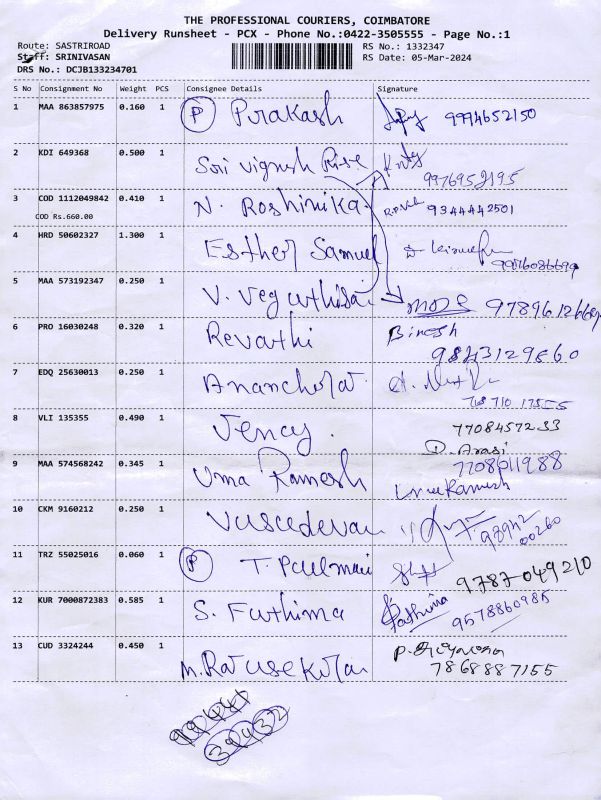 THE PROFESSIONAL COURIERS, COIMBATORE
Delivery Runsheet - PCX - Phone No.:0422-3505555 - Page No.:1
Route: SASTRIROAD RS No.: 1332347
Staff: SRINIVASAN RS Date: 05-Mar-2024
DRS No.: DCJB133234701
S No Consignment No Weight PCS Consignee Details Signature
1 MAA 863857975 0.160 1 P Prakash 9994652150
2 KDI 649368 0.500 1 Sri Vignesh Rise
3 COD 1112049842 0.410 1 N. Roshinika 9344442501
COD Rs.660.00
4 HRD 50602327 1.300 1 Esther Samuel
5 MAA 573192347 0.250 1 V.
6 PRO 16030248 0.320 1 Revathi Binesh
7 EDQ 25630013 0.250 1
8 VLI 135355 0.490 1 Jency. 7708457233
D. Arasi
9 MAA 574568242 0.345 1 Uma Ramesh 7708011988
Uma Ramesh
10 CKM 9160212 0.250 1 Vasudevan 98942
00260
11 TRZ 55025016 0.060 1 P T. 9787049210
12 KUR 7000872383 0.585 1 S. Fathima Fathima
9578860985
13 CUD 3324244 0.450 1 M. Rajasekar P.
7868887155